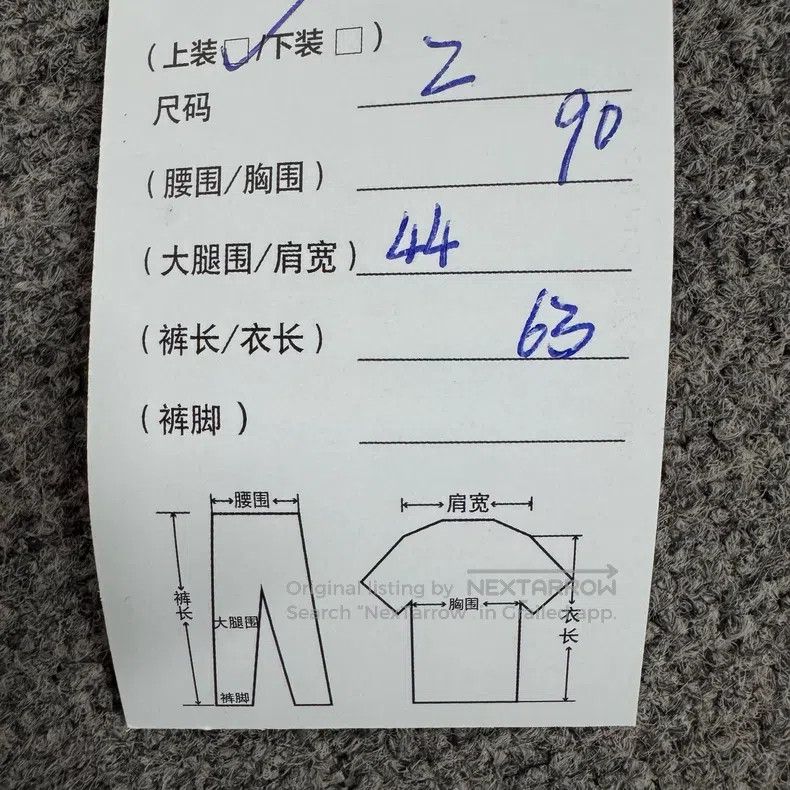 (上装☑/下装□)
尺码 2
90
(腰围/胸围)
(大腿围/肩宽) 44
(裤长/衣长) 63
(裤脚)
腰围
肩宽
裤长
大腿围
裤脚
胸围
衣长
Original listing by NEXTARROW
Search "NexTarrow" in Grailed app.